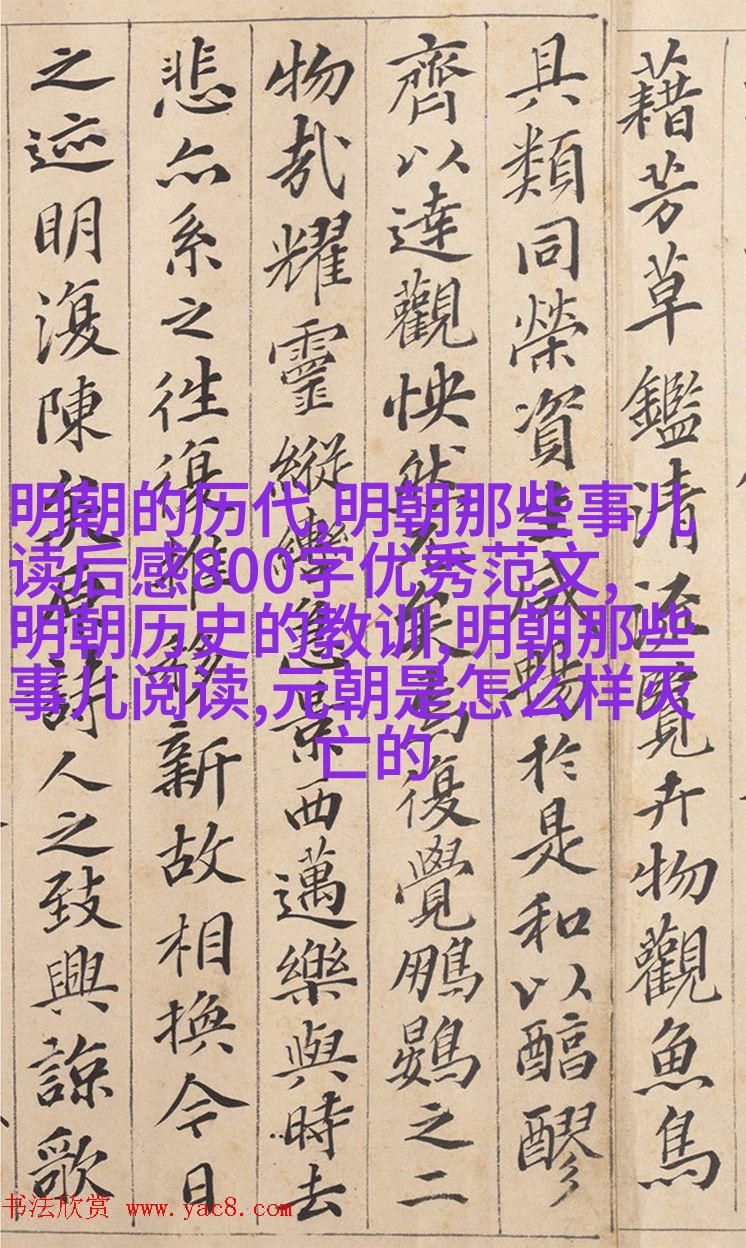 藉芳草鑑清流覽卉物觀魚鳥
具類同榮資生咸暢於是和以醕醪
齊以達觀怏然兀矣焉復覺鵬鷃之二
物哉耀靈縱轡急景西邁樂與時去
悲亦系之往復推移新故相換今日
之迹明復陳矣原詩人之致興諒歌
明朝的历代,明朝那些事儿
读后感800字优秀范文,
明朝历史的教训,明朝那些
事儿阅读,元朝是怎么样灭
亡的
书法欣赏 www.yac8.com